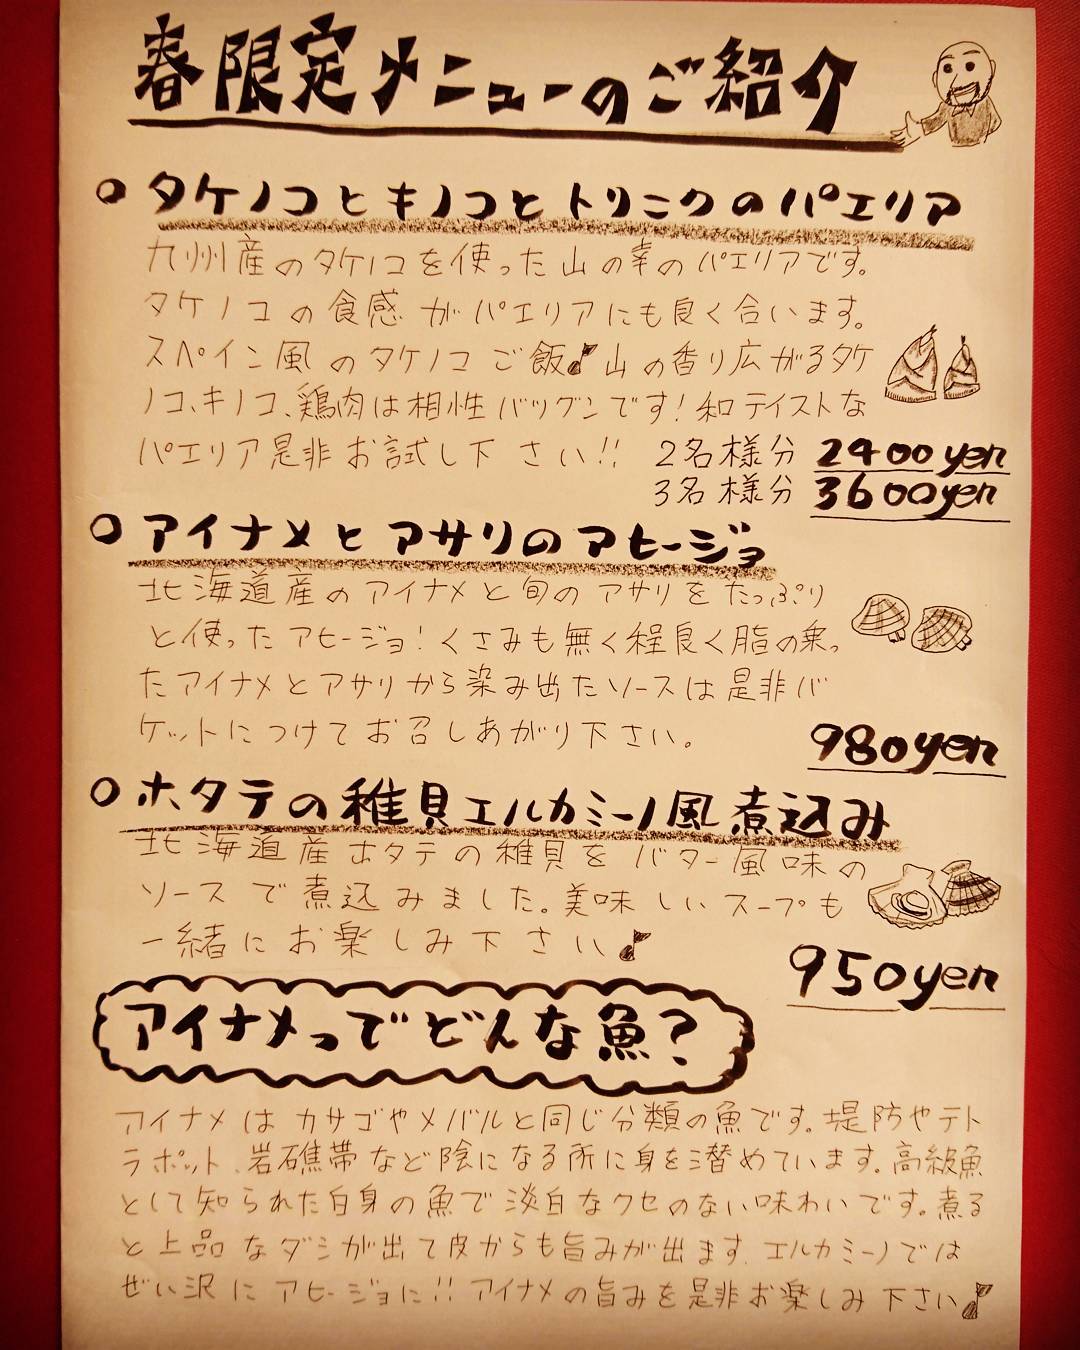 春限定メニューのご紹介
○タケノコとキノコとトリニクのパエリア
九州産のタケノコを使った山の幸のパエリアです。
タケノコの食感がパエリアにも良く合います。
スペイン風のタケノコご飯♪山の香り広がるタケ
ノコ、キノコ、鶏肉は相性バツグンです!和テイストな
パエリア是非お試し下さい!!
2名様分 2400yen
3名様分 3600yen
○アイナメとアサリのアヒージョ
北海道産のアイナメと旬のアサリをたっぷり
と使ったアヒージョ!くさみも無く程良く脂の乗っ
たアイナメとアサリから染み出たソースは是非バ
ケットにつけてお召しあがり下さい。
980yen
○ホタテの稚貝エルカミーノ風煮込み
北海道産ホタテの稚貝をバター風味の
ソースで煮込みました。美味しいスープも
一緒にお楽しみ下さい♪
950yen
アイナメってどんな魚?
アイナメはカサゴやメバルと同じ分類の魚です。堤防やテト
ラポット、岩礁帯など陰になる所に身を潜めています。高級魚
として知られた白身の魚で淡白なクセのない味わいです。煮る
と上品なダシが出て皮からも旨みが出ます。エルカミーノでは
ぜい沢にアヒージョに!!アイナメの旨みを是非お楽しみ下さい♪